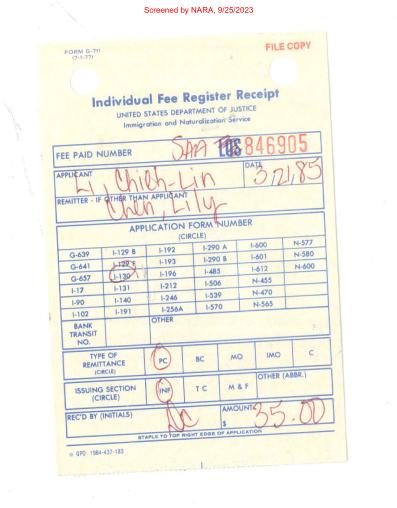 Screened by NARA, 9/25/2023
FORM G-711
(7-1-77)
FILE COPY
Individual Fee Register Receipt
UNITED STATES DEPARTMENT OF JUSTICE
Immigration and Naturalization Service
FEE PAID NUMBER LOS 846905
APPLICANT Li, Chieh-Lin DATE 3/21/85
REMITTER - IF OTHER THAN APPLICANT
Chen, Lily
APPLICATION FORM NUMBER
(CIRCLE)
G-639 I-129 B I-192 I-290 A I-600 N-577
G-641 I-129 F I-193 I-290 B I-601 N-580
G-657 I-130 I-196 I-485 I-612 N-600
I-17 I-131 I-212 I-506 N-455
I-90 I-140 I-246 I-539 N-470
I-102 I-191 I-256A I-570 N-565
BANK TRANSIT NO. OTHER
TYPE OF REMITTANCE (CIRCLE) PC BC MO IMO C
ISSUING SECTION (CIRCLE) INF T C M & F OTHER (ABBR.)
REC'D BY (INITIALS) AMOUNT $ 35.00
STAPLE TO TOP RIGHT EDGE OF APPLICATION
GPO: 1984-437-183